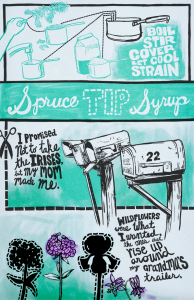 BOIL
STIR
COVER
LET COOL
STRAIN
Spruce TIP Syrup
I PROMISED
Not to take
the IRISES,
but MY MOM
MADE me.
22
WILDFLOWERS
were what
I wanted
rise up
around
my grandma's
trailer.